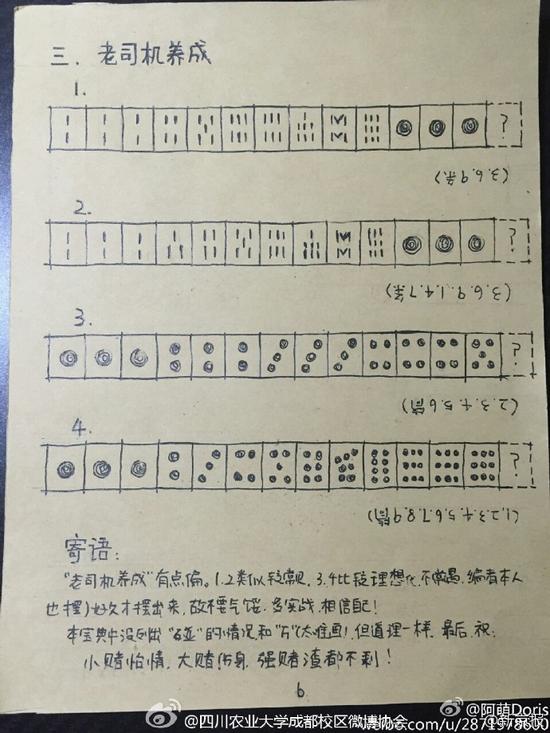 三. 老司机养成
1.
?
(3.6.9条)
2.
?
(3.6.9.1.4.7条)
3.
?
(2.3.4.5.6筒)
4.
?
(1.2.3.4.5.6.7.8.9筒)
寄语:
"老司机养成"有点偏。1.2类似较常见, 3.4比较理想化, 不常遇, 编者本人
也摆了好久才摆出来, 故不要气馁, 多实战, 相信自己!
本宝典中没列出"碰"的情况和"万"(太难画), 但道理一样。最后, 祝:
小赌怡情, 大赌伤身, 强赌渣都不剩!
6
@四川农业大学成都校区微博协会
@阿萌Doris
weibo.com/u/2871978600